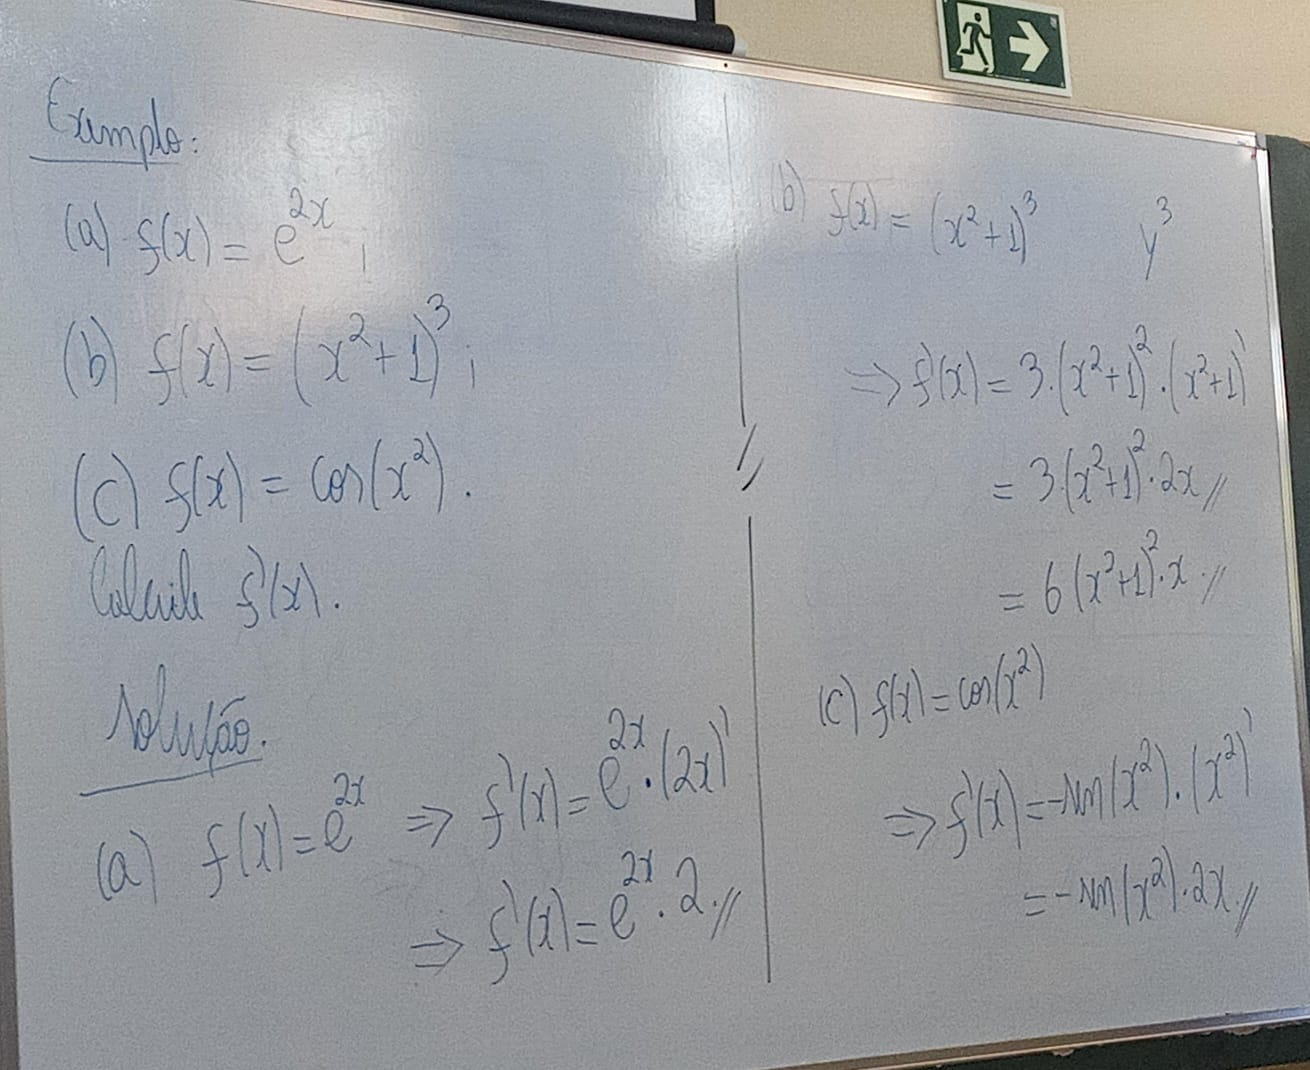 Exemplo:
(a) f(x) = e^{2x};
(b) f(x) = (x²+1)³;
(c) f(x) = cos(x²).
Calcule f'(x).
Solução.
(a) f(x) = e^{2x} ⇒ f'(x) = e^{2x}·(2x)'
⇒ f'(x) = e^{2x}·2.//
(b) f(x) = (x²+1)³ y³
⇒ f'(x) = 3·(x²+1)²·(x²+1)'
= 3·(x²+1)²·2x//
= 6(x²+1)²·x.//
(c) f(x) = cos(x²)
⇒ f'(x) = -sen(x²)·(x²)'
= -sen(x²)·2x.//